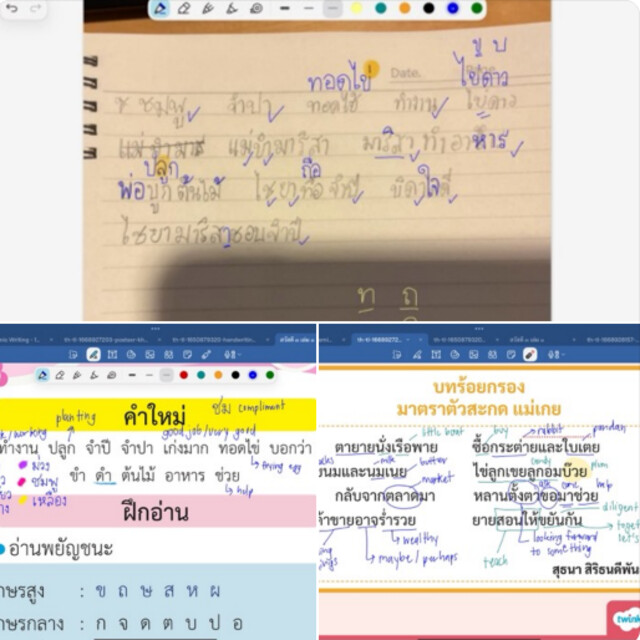 ข บ
ทอดไข่ Date. ไข่ดาว
ชมพู จำปา ทอดไข่ ทำงาน ไข่ดาว
แม่ขำมารีสา มารีสาทำอาหาร
ปลูก ถือ
พ่อปูกต้นไม้ ไชยาถือจำปี บิดาใจดี
ไชยามารีสาชอบจำปี
ท ถ
คำใหม่ ชม compliment
planting good job/very good
/working
ทำงาน ปลูก จำปี จำปา เก่งมาก ทอดไข่ บอกว่า
frying egg
ม่วง
ชมพู ขำ ดำ ต้นไม้ อาหาร ช่วย
เหลือง help
ฝึกอ่าน
อ่านพยัญชนะ
กษรสูง : ข ถ ษ ส ห ผ
กษรกลาง : ก จ ด ต บ ป อ
บทร้อยกรอง
มาตราตัวสะกด แม่เกย
little boat buy rabbit pandan
ตายายนั่งเรือพาย ซื้อกระต่ายและใบเตย
milk butter candy plum
นมและนมเนย ไข่ลูกเขยลูกอมบ๊วย
market ask come help
กลับจากตลาดมา หลานตั้งตาขอมาช่วย
diligent
ค้าขายอาจร่ำรวย ยายสอนให้ขยันกัน
wealthy looking forward to something let's
maybe/perhaps teach
สุธนา สิริธนดีพัน
twinkl